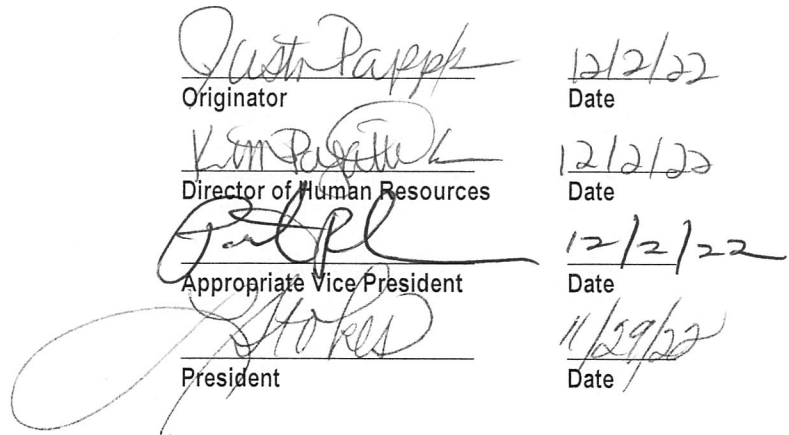 12/2/22
Originator Date
Kim 12/2/22
Director of Human Resources Date
12/2/22
Appropriate Vice President Date
Stokes 11/29/22
President Date